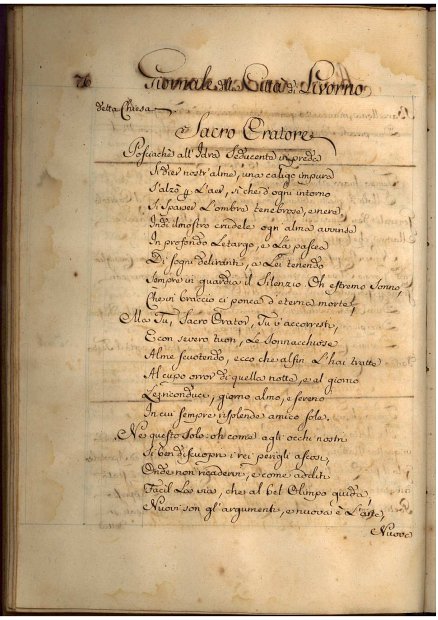 76 Giornale di Città di Livorno
della Chiesa
Sacro Oratore
Posciachè all' Idra Seducente in preda
Si dier nostr' alme, una caligo impura
S'alzò p L'aer, sì che d'ogni intorno
Si sparser L'ombre tenebrose, e nere,
Indi il mostro crudele ogn' alma avvinse
In profondo Letargo, e La pascea
Di sogni deliranti, a Lei tenendo
Sempre in guardia il Silenzio. Oh estremo Sonno,
Che in braccio ci ponea d'eterna morte!
Ma Tu, Sacro Orator, Tu v'accorresti,
E con severo tuon, Le Sonnacchiose
Alme scuotendo, ecco che alfin L'hai tratte
Al cupo orror di quella notte, e al giorno
Le riconduci, giorno almo, e sereno
In cui sempre risplende amico sole.
Ne questo solo: oh come agli occhi nostri
Si ben discuopri i rei perigli ascosi,
Onde non ricadervi, e come additi
Facil La via, che al bel Olimpo guida,
Nuovi son gl'argumenti, e nuova è L'arte,
Nuove